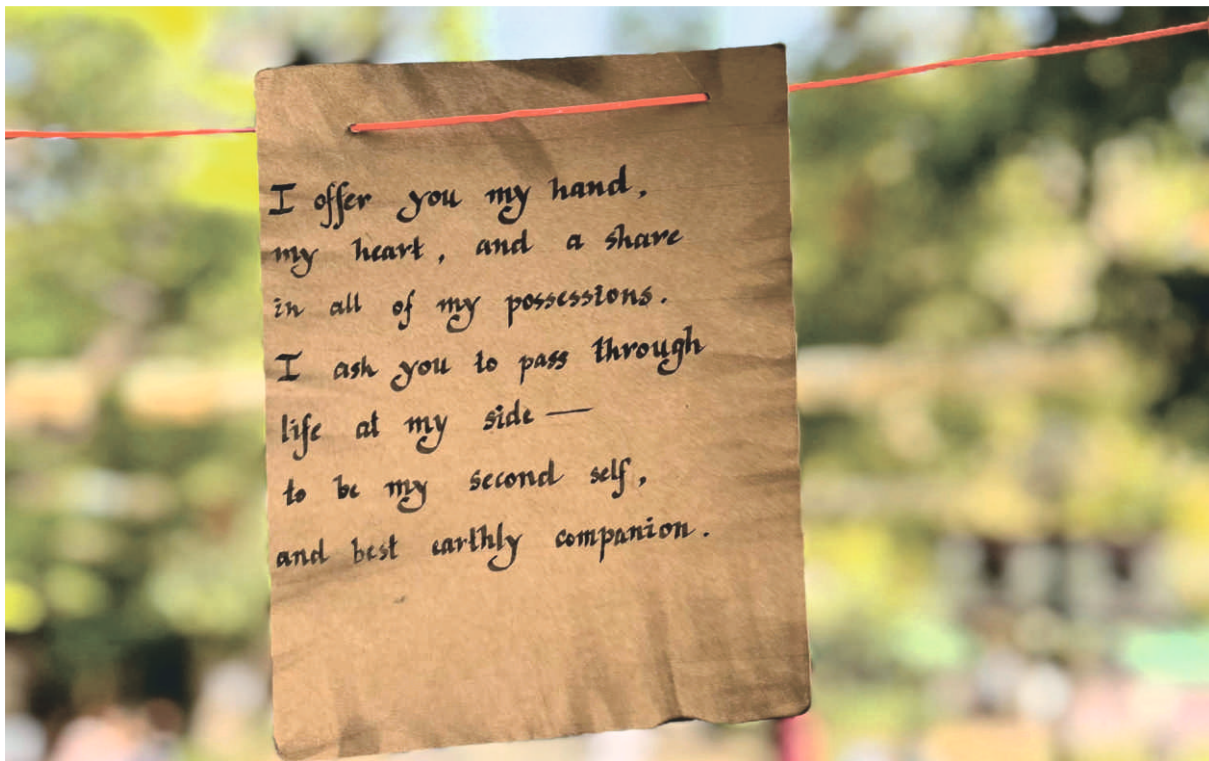 I offer you my hand,
my heart, and a share
in all of my possessions.
I ask you to pass through
life at my side —
to be my second self,
and best earthly companion.